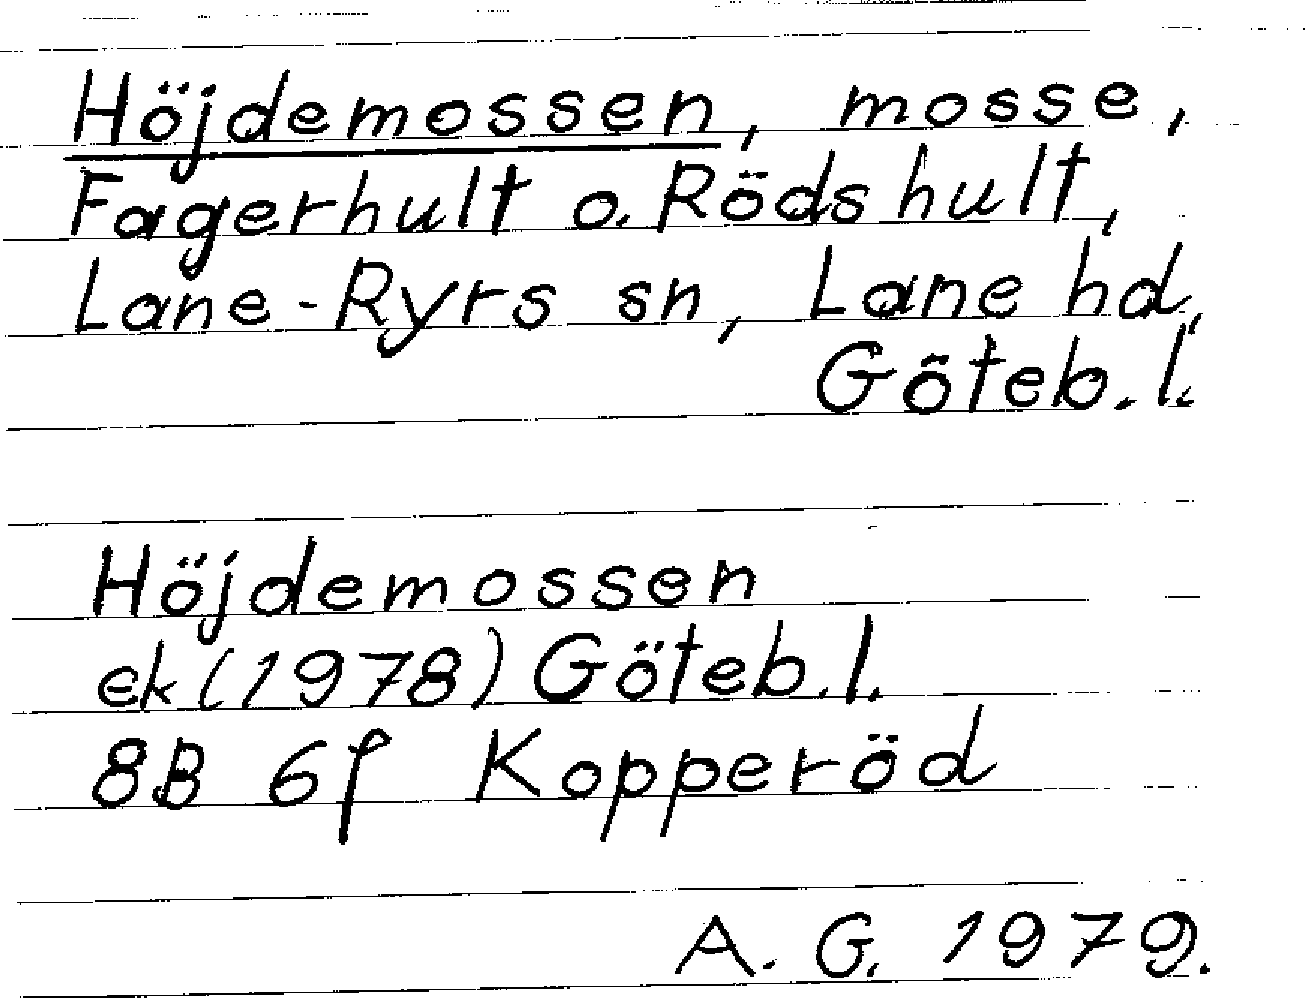 Höjdemossen, mosse,
Fagerhult o. Rödshult,
Lane-Ryrs sn, Lane hd,
Göteb. l.
Höjdemossen
ek (1978) Göteb. l.
8B 6f Kopperöd
A. G. 1979.